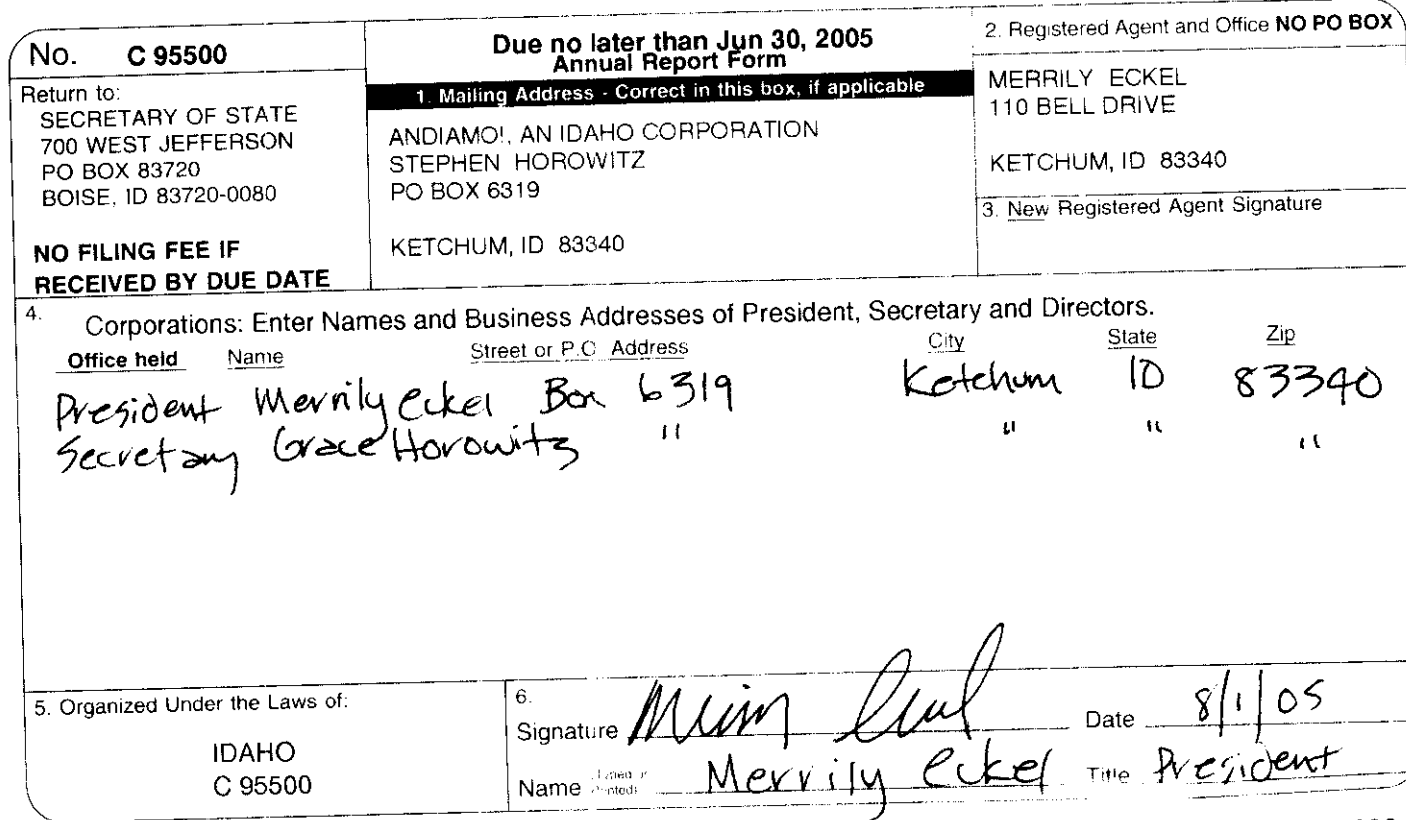 No. C 95500
Return to:
SECRETARY OF STATE
700 WEST JEFFERSON
PO BOX 83720
BOISE, ID 83720-0080
NO FILING FEE IF
RECEIVED BY DUE DATE
Due no later than Jun 30, 2005
Annual Report Form
1. Mailing Address - Correct in this box, if applicable
ANDIAMO!, AN IDAHO CORPORATION
STEPHEN HOROWITZ
PO BOX 6319
KETCHUM, ID 83340
2. Registered Agent and Office NO PO BOX
MERRILY ECKEL
110 BELL DRIVE
KETCHUM, ID 83340
3. New Registered Agent Signature
4. Corporations: Enter Names and Business Addresses of President, Secretary and Directors.
Office held Name Street or P.O. Address City State Zip
President Merrily Eckel Box 6319 Ketchum ID 83340
Secretary Grace Horowitz " " " "
5. Organized Under the Laws of:
IDAHO
C 95500
6.
Signature Date 8/1/05
Name Merrily Eckel Title President